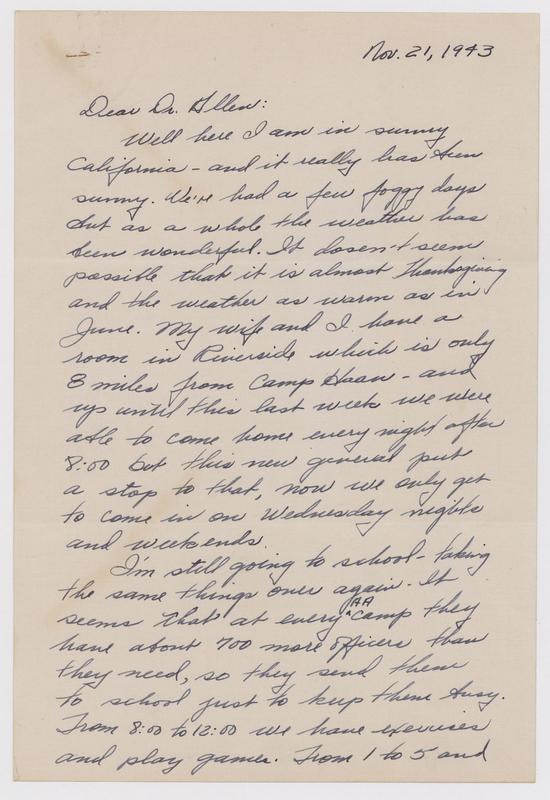 Nov. 21, 1943
Dear Dr. Allen:
Well here I am in sunny
California - and it really has been
sunny. We've had a few foggy days
but as a whole the weather has
been wonderful. It dosen't seem
possible that it is almost Thanksgiving
and the weather as warm as in
June. My wife and I have a
room in Riverside which is only
8 miles from Camp Haan - and
up until this last week we were
able to come home every night after
8:00 but this new general put
a stop to that, now we only get
to come in on Wednesday nights
and weekends.
I'm still going to school - taking
the same things over again. It
seems that at every AA camp they
have about 700 more officers than
they need, so they send them
to school just to keep them busy.
From 8:00 to 12:00 we have exercises
and play games. From 1 to 5 and